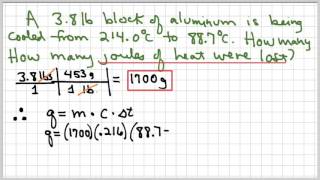 A 3.8 lb block of aluminum is being
cooled from 214.0°C to 88.7°C. How many
How many joules of heat were lost?
3.8 lbs | 453 g = 1700 g
1 | 1 lb
∴ q = m · c · Δt
q = (1700)(.216)(88.7-